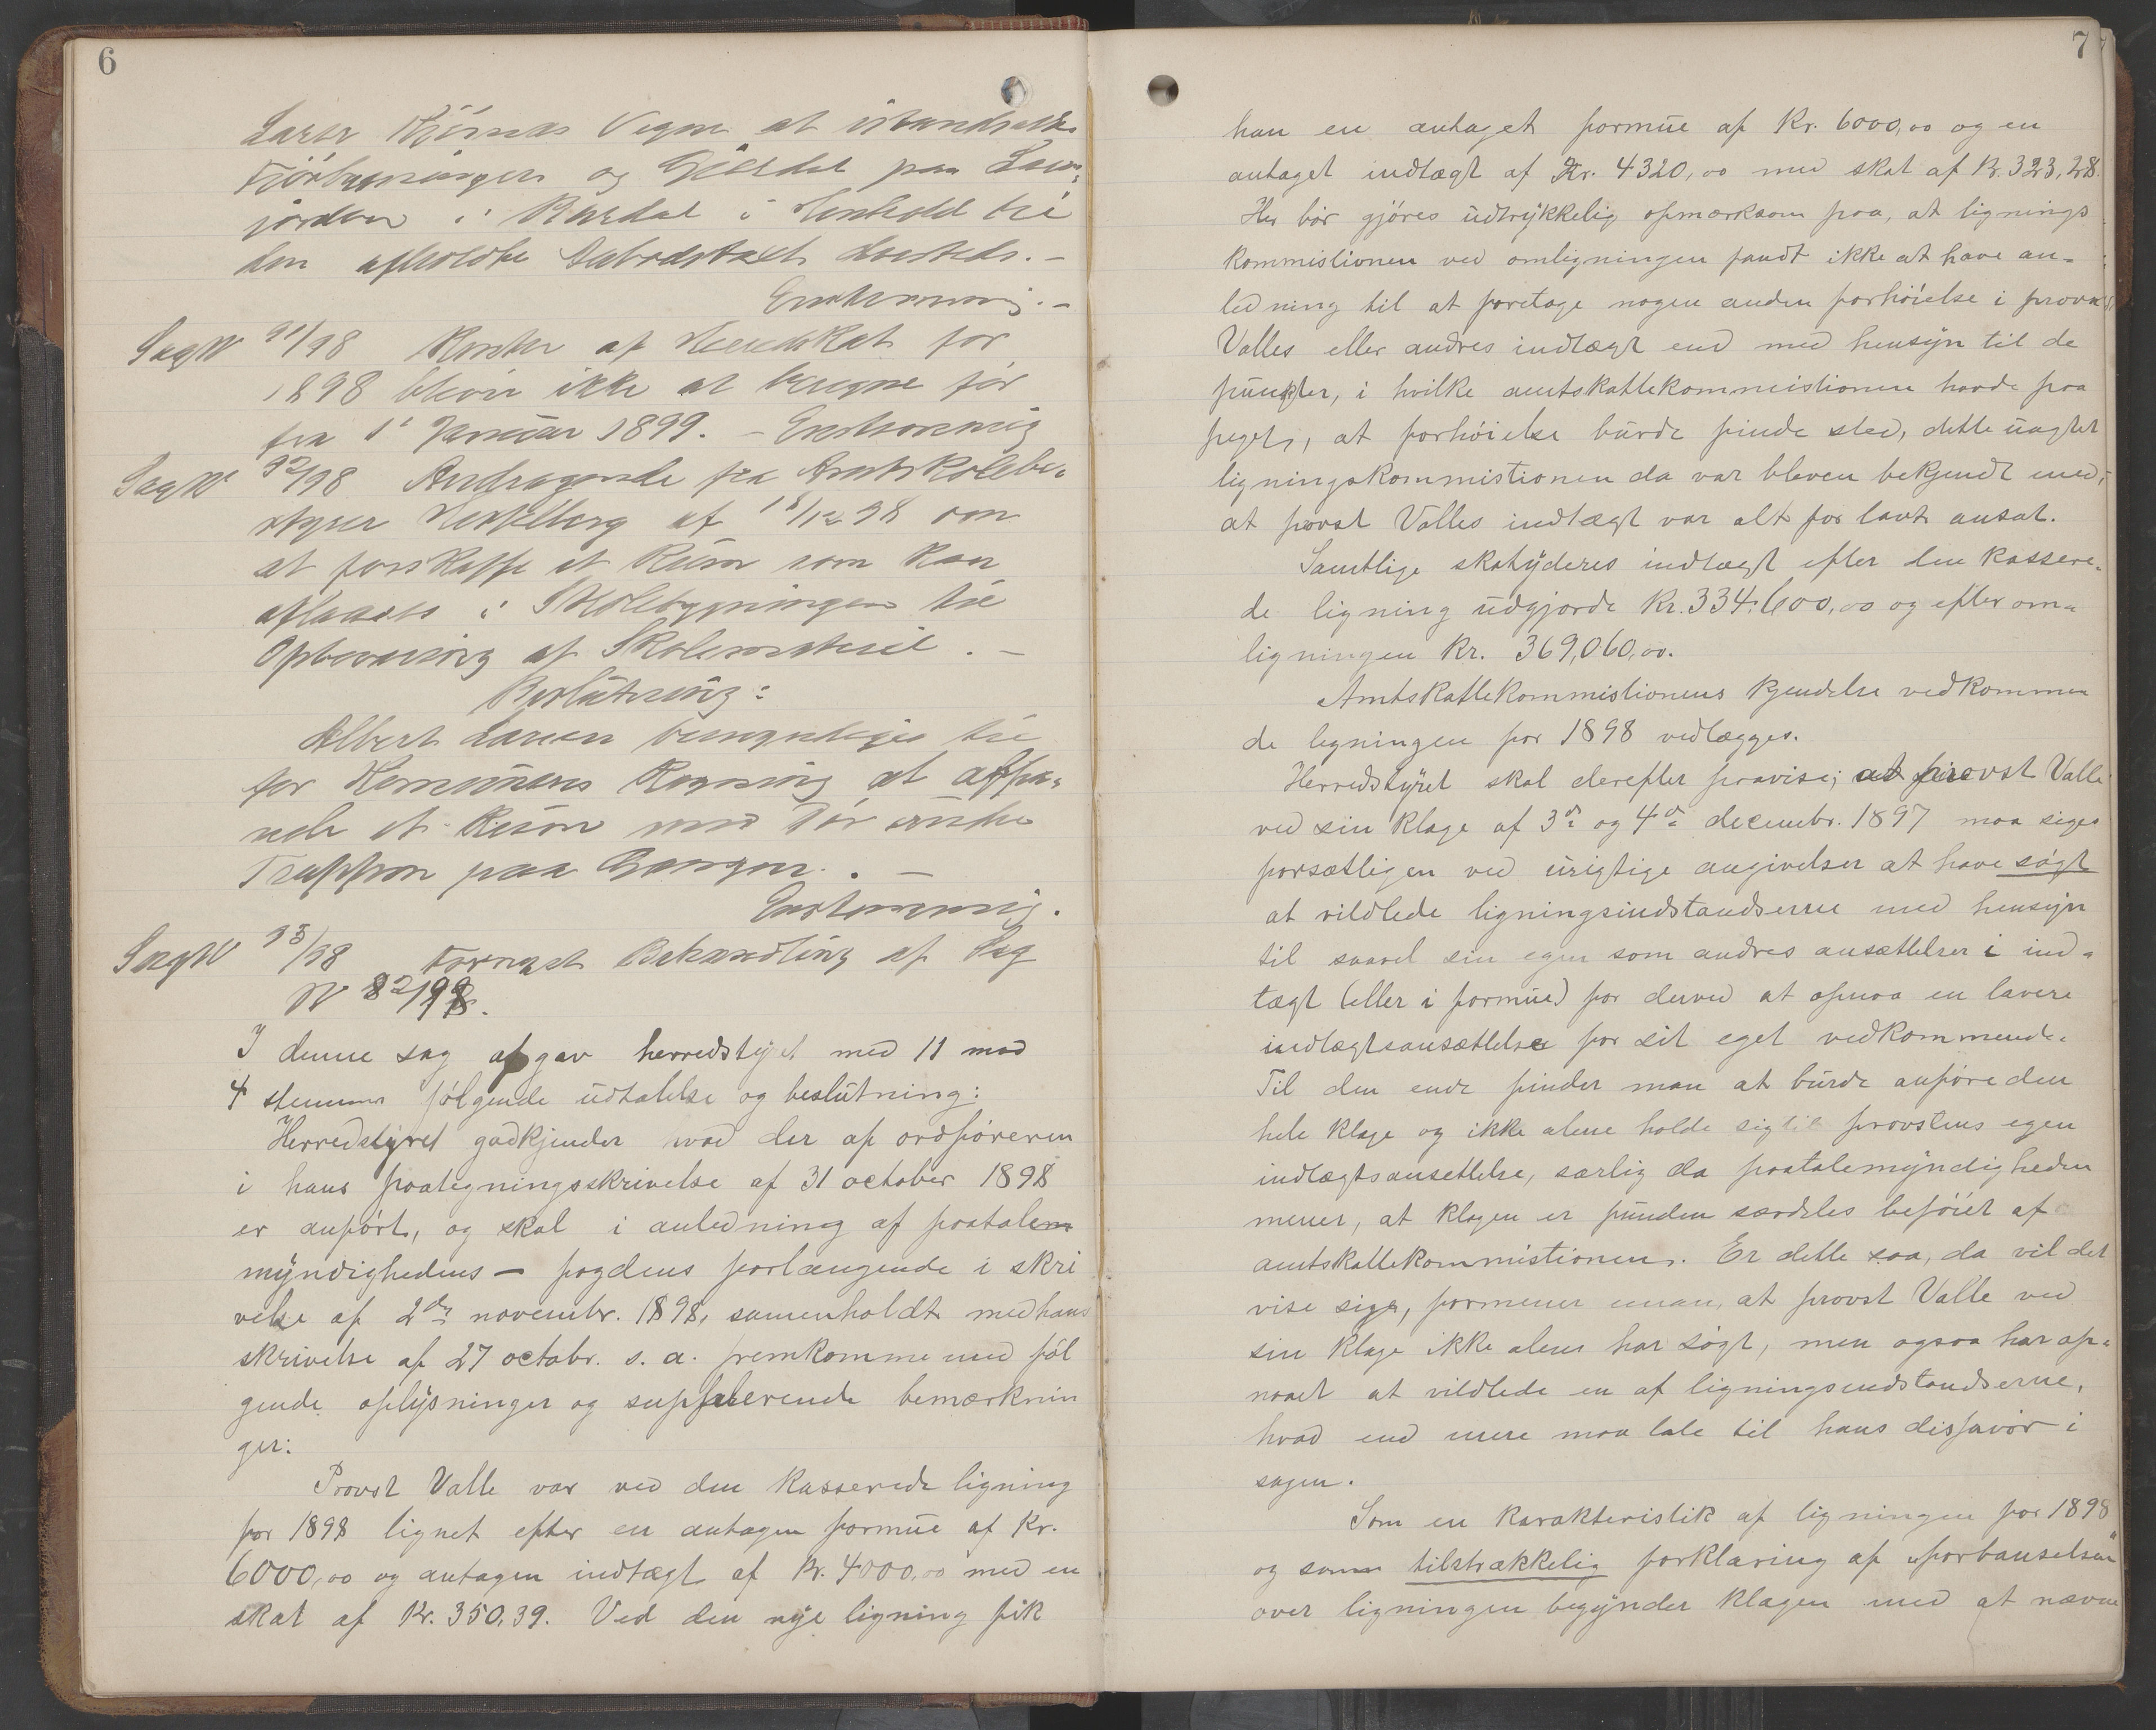 6
Vegne at istandsætte
og Gjerdet paa Lens¬
jorden i Bardal i Henhold til
den afholdte Aabodstaxt besluttes. –
Enstemmig. –
Sag N 91/98 Renter af Herredskat for
1898 bliver ikke at beregne før
fra 1' Januar 1899. – Enstemmig
Sag N 92/98 Andragende fra Amtsskolebe¬
styrer af 18/12 98 om
at forskaffe et Rum som kan
aflaases i Skolebygningen til
Opbevaring af Skolemateriel. –
Beslutning:
Albert Larsen bemyndiges til
for Komunens Regning at afpa¬
nele et Rum med Dør under
Trappen paa Gangen. –
Enstemmig.
Sag N 93/98 Fornyet Behandling af Sag
N 82/98.
I denne sag afgav herredstyret med 11 mod
4 stemmer følgende udtalelse og beslutning:
Herredstyret godkjender hvad der af ordføreren
i hans paategningsskrivelse af 31 october 1898
er anført, og skal i anledning af paatalem
myndighedens – fogdens forlangende i skri
velse af 2den novembr. 1898, samenholdt med hans
skrivelse af 27 octobr. s. a. fremkomme med føl
gende oplysninger og supplerende bemærknin
ger:
Provst Valle var ved den kasserede ligning
for 1898 lignet efter en antagen formue af Kr.
6000,00 og antagen indtægt af Kr. 4000,00 med en
skat af Kr. 350,39. Ved den nye ligning fik
7
han en antaget formue af Kr. 6000,00 og en
antaget indtægt af Kr. 4320,00 med skat af Kr. 323,28.
Her bør gjøres udtrykkelig opmærksom paa, at lignings
kommistionen ved omligningen fandt ikke at have an¬
ledning til at foretage nogen anden forhøielse i provst
Valles eller andres indtægt end med hensyn til de
punkter, i hvilke amtskattekommistionen havde paa
peget, at forhøielse burde finde sted, dette uagtet
ligningskommistionen da var bleven bekjendt med,
at provst Valles indtægt var alt for lavt ansat.
Samtlige skatyderes indtægt efter den kassere¬
de ligning udgjorde Kr. 334,600,00 og efter om¬
ligningen Kr. 369,060,00.
Amtskattekommistionens kjendelse vedkommen
de ligningen for 1898 vedlægges.
Herredstyret skal derefter paavise, at provst Valle
ved sin klage af 3de og 4de decembr. 1897 maa siges
forsætligen ved urigtige angivelser at have søgt
at vildlede ligningsindstandserne med hensyn
til saavel sin egen som andres ansættelser i ind¬
tægt (eller i formue) for derved at opnaa en lavere
indtægtsansættelse for sit eget vedkommende.
Til den ende finder man at burde anføre den
hele klage og ikke alene holde sig til provstens egen
indtægtsansettelse, særlig da paatalemyndigheden
mener, at klagen er funden særdeles beføiet af
amtskattekommistionen. Er dette saa, da vil det
vise sig, formener man, at provst Valle ved
sin klage ikke alene har søgt, men ogsaa har op¬
naaet at vildlede en af ligningsindstandserne,
hvad end mere maa tale til hans disfavør i
sagen.
Som en karakteristik af ligningen for 1898
og som tilstrækkelig forklaring af „forbauselsen"
over ligningen begynder klagen med at nævne